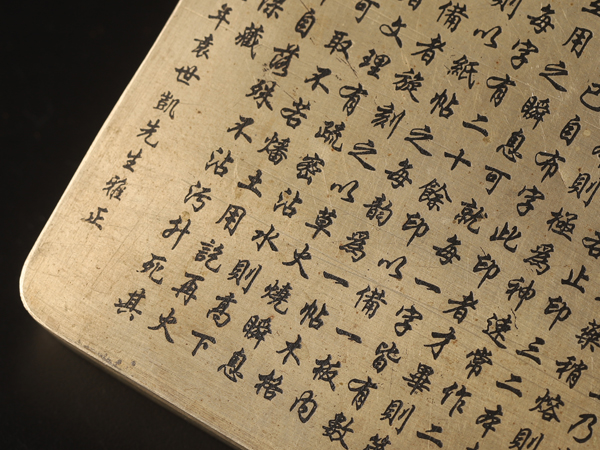 乃
藥稍熔則
若止印三二本
則極為神速常作二
已自布字此印者才畢則第
用之瞬息可就每一字皆有數
每字有二十餘印以備一板内
則以紙帖之每韻為一帖木格
備者旋刻之以草火燒瞬息
文理有疏密沾水則高下
可取不若燔土用訖再火
自落殊不沾污升死其
藏
年袁世凱先生雅正